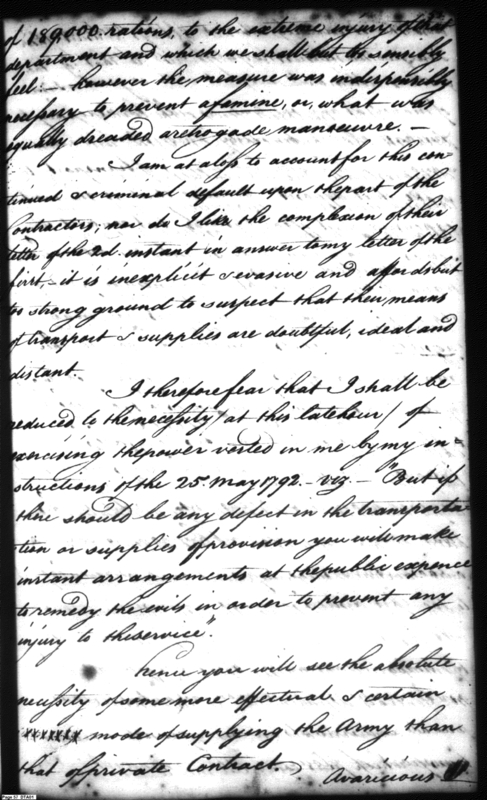 of 189000 rations, to the extreme injury of that
department and which we shall but too sensibly
feel:- however the measure was indispensibly
necessary to prevent a famine, or, what was
equally dreaded a retrogade manoeuvre. -
I am at a loss to account for this con
tinued & criminal default upon the part of the
Contractors; nor do I like the complexion of their
letter of the 2d. instant in answer to my letter of the
first,- it is inexplicit & evasive and affords but
too strong ground to suspect that their means
of transport & supplies are doubtful, ideal and
distant.
I therefore fear that I shall be
reduced to the necessity / at this late hour / of
exercising the power vested in me by my in=
structions of the 25. May 1792. - viz - "But if
there should be any defect in the transporta
tion or supplies of provision you will make
instant arrangements at the public expence
to remedy the evils in order to prevent any
injury to the service".
hence you will see the absolute
necessity of some more effectual & certain
xxxxxxx mode of supplying the Army than
that of private Contract
Avaricious